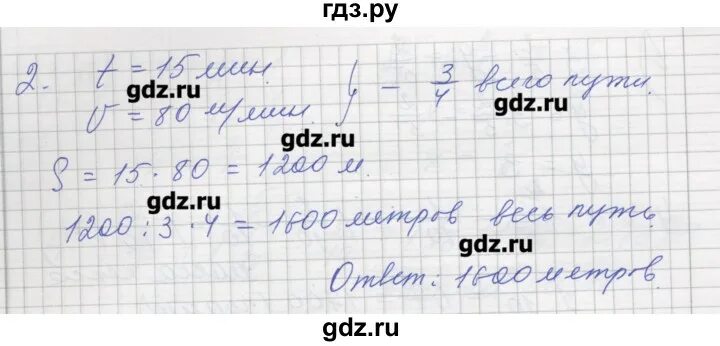 гдз.ру
2. t = 15 мин.
gdz.ru
v = 80 м/мин. } - 3/4 всего пути.
gdz.ru
gdz.ru
S = 15 · 80 = 1200 м.
gdz.ru
1200 : 3 · 4 = 1600 метров весь путь.
gdz.ru
Ответ: 1600 метров.
gdz.ru